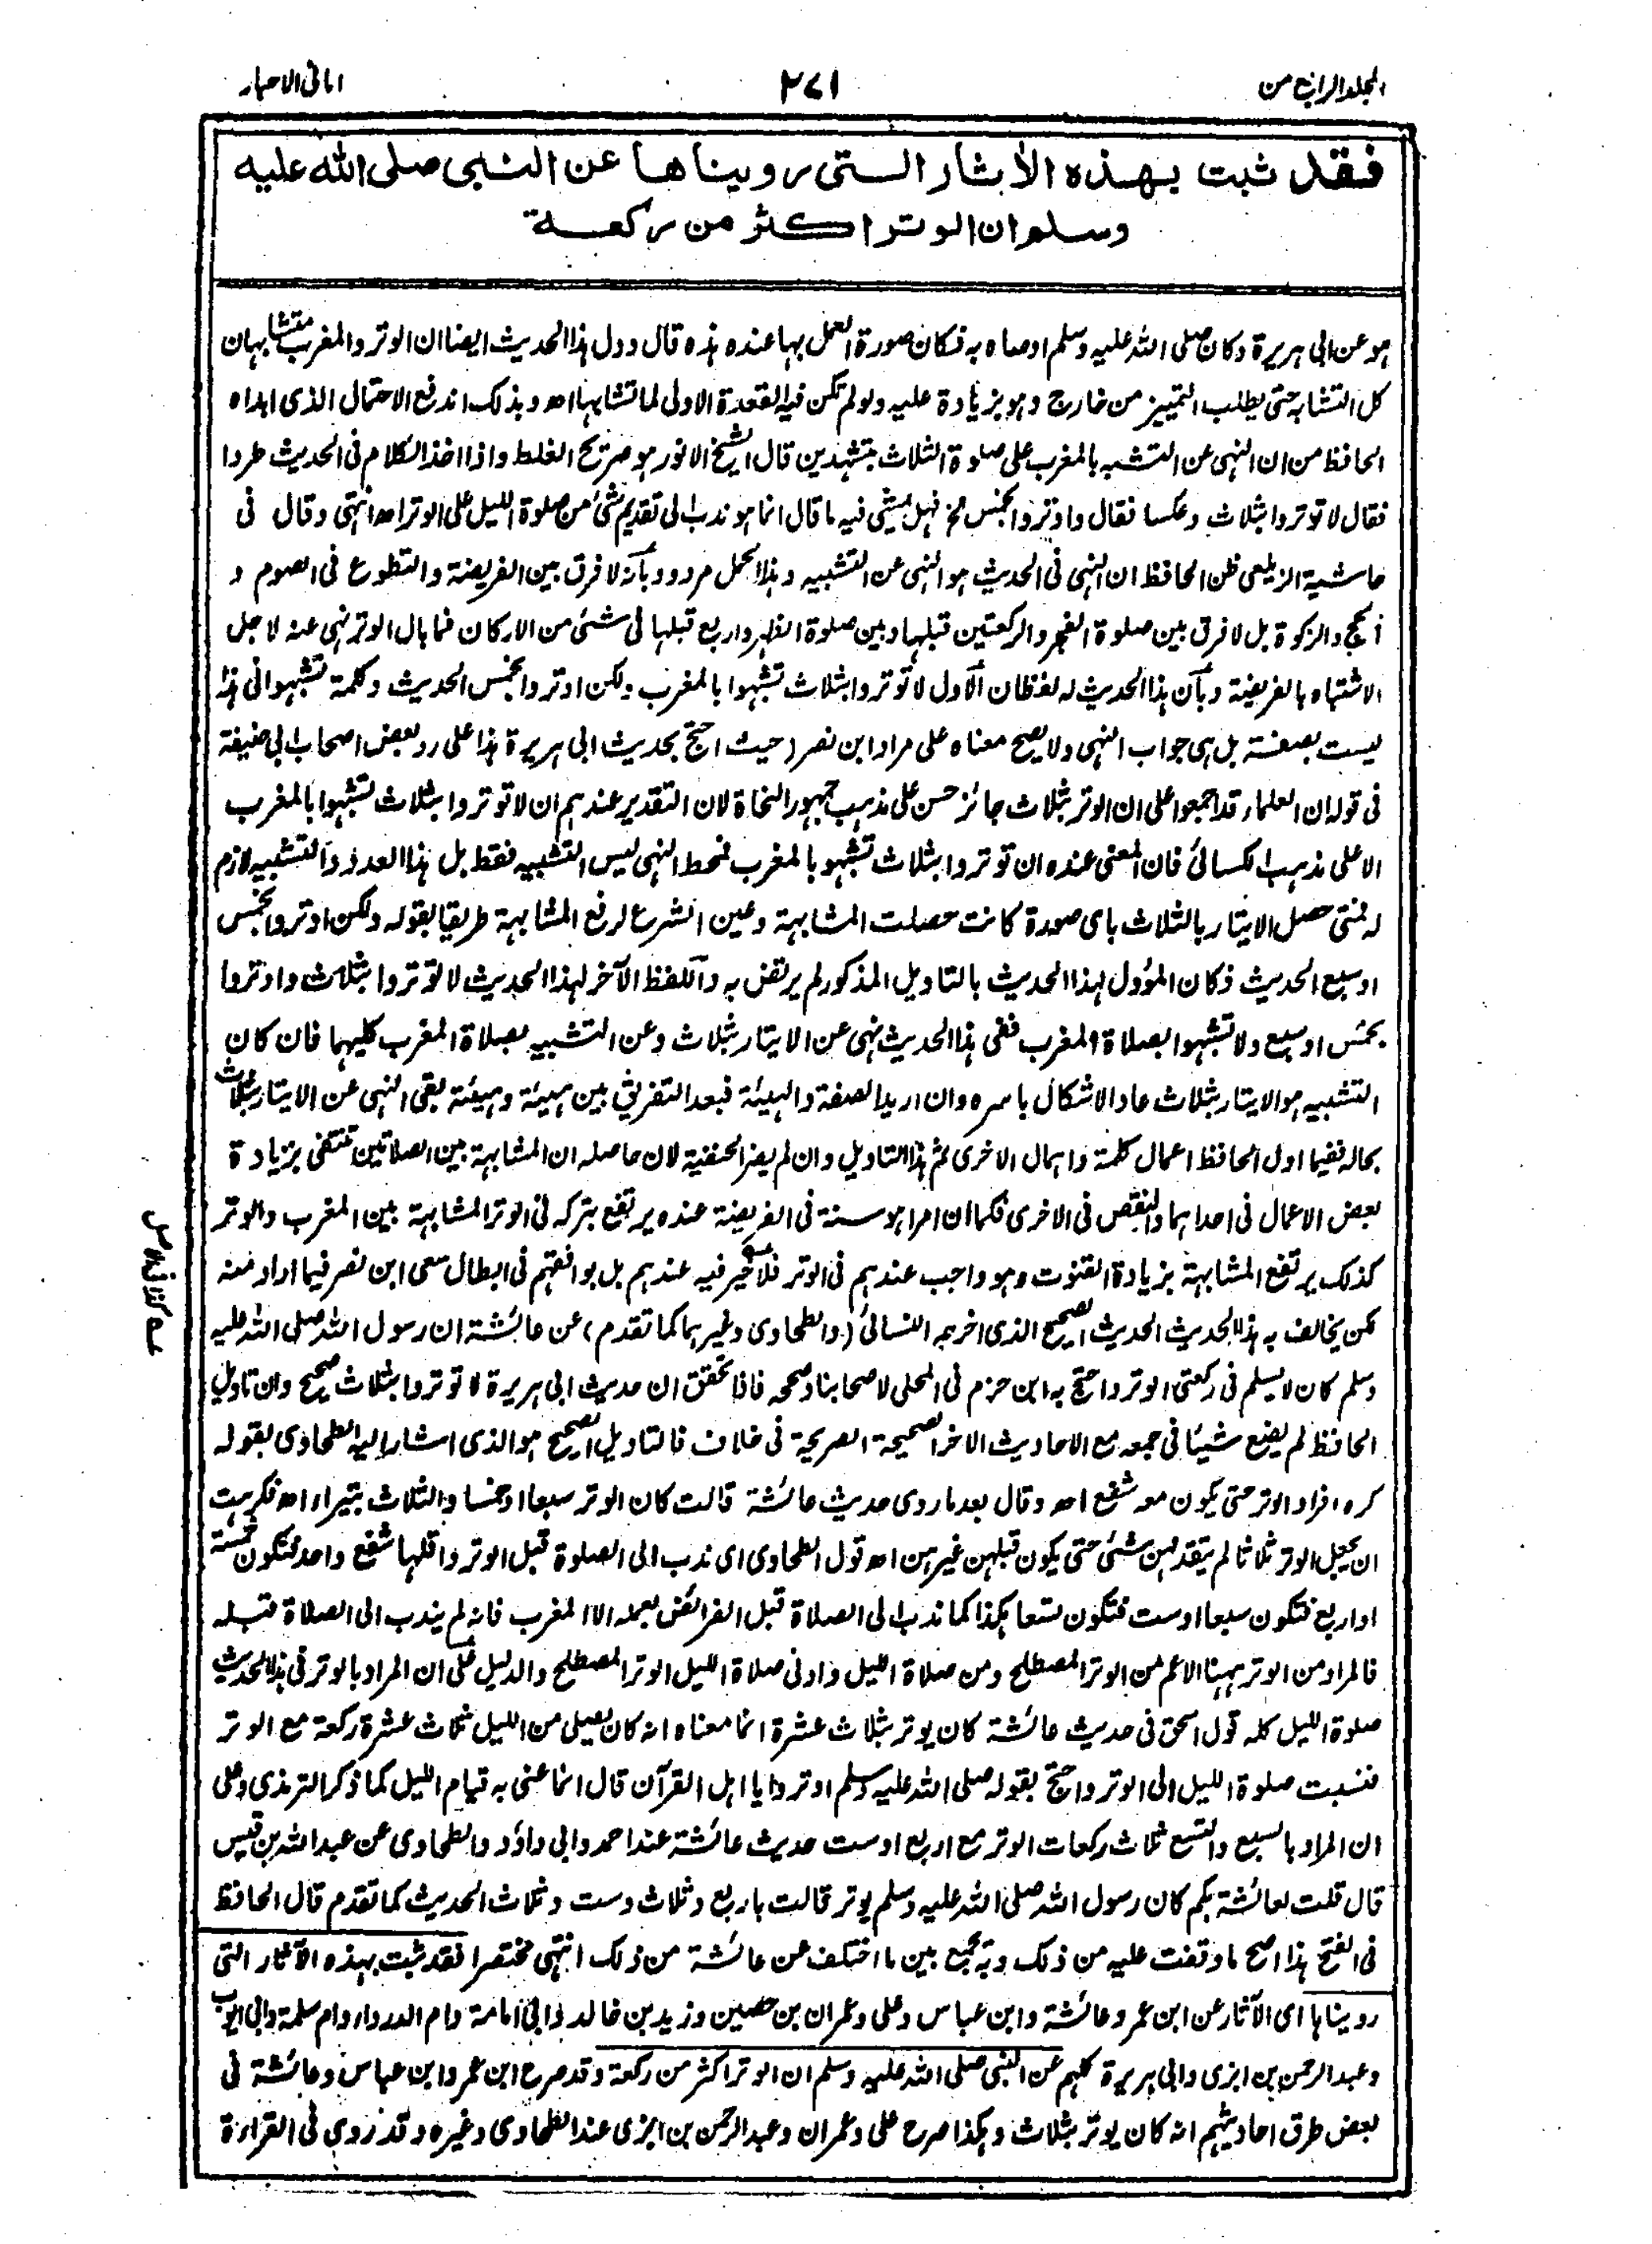 المجلد الرابع من
٢٧١
امانى الاحبار
فقد ثبت بهذه الأثار التى رويناها عن النبى صلى الله عليه
وسلم ان الوتر اكثر من ركعة
هو عن ابى هريرة وكان صلى الله عليه وسلم اوصاه به فكان صورة العمل بها عنده هذه قال ودل هذا الحديث ايضا ان الوتر والمغرب متشابهان
كل التشابه حتى يطلب التمييز من خارج وهو بزيادة عليه ولو لم تكن فيه القعدة الاولى لما تشابها اھ وبذلك اندفع الاحتمال الذى ابداه
الحافظ من ان النهى عن التشبه بالمغرب على صلوة الثلاث بتشهدين قال الشيخ الانور هو صريح الغلط واذا اخذ الكلام فى الحديث طردا
فقال لا توتروا بثلاث وعكسا فقال واوتروا بخمس الخ فهل يمشى فيه ما قال انما هو ندب الى تقديم شئ من صلوة الليل على الوتر اھ انتهى وقال فى
حاشية الزيلعى ظن الحافظ ان النهى فى الحديث هو النهى عن التشبيه وهذا الحمل مردود بأنه لا فرق بين الفريضة والتطوع فى الصوم و
الحج والزكوة بل لا فرق بين صلوة الفجر والركعتين قبلها وبين صلوة الظهر واربع قبلها فى شئ من الاركان فما بال الوتر نهى عنه لاجل
الاشتباه بالفريضة وبأن هذا الحديث له لفظان الأول لا توتروا بثلاث تشبهوا بالمغرب ولكن اوتروا بخمس الحديث وكلمة تشبهوا فى هذا
ليست بصفة بل هى جواب النهى ولا يصح معناه على مراد ابن نصر (حيث احتج بحديث ابى هريرة هذا على رد بعض اصحاب ابى حنيفة
فى قوله ان العلماء قد اجمعوا على ان الوتر بثلاث جائز حسن على مذهب جمهور النحاة لان التقدير عندهم ان لا توتروا بثلاث تشبهوا بالمغرب
الا على مذهب الكسائى فان المعنى عنده ان توتروا بثلاث تشبهو بالمغرب فمحط النهى ليس التشبيه فقط بل هذا العدد والتشبيه لازم
له فمتى حصل الايتار بالثلاث باى صورة كانت حصلت المشابهة وعين الشرع لرفع المشابهة طريقا بقوله ولكن اوتروا بخمس
اوسبع الحديث فكان المؤول لهذا الحديث بالتاويل المذكور لم يرتض به واللفظ الآخر لهذا الحديث لا توتروا بثلاث واوتروا
بخمس اوسبع ولا تشبهوا بصلاة المغرب ففى هذا الحديث نهى عن الايتار بثلاث وعن التشبيه بصلاة المغرب كليهما فان كان
التشبيه هو الايتار بثلاث عاد الاشكال باسره وان اريد الصفة والهيئة فبعد التفريق بين هيئة وهيئة بقى النهى عن الايتار بثلاث
بحاله ففيما اول الحافظ اعمال كلمة واهمال الاخرى ثم هذا التاويل وان لم يضر الحنفية لان حاصله ان المشابهة بين الصلاتين تنتفى بزيادة
بعض الاعمال فى احداهما والنقص فى الاخرى فكما ان امرا هو سنة فى الفريضة عنده يرتفع بتركه فى الوتر المشابهة بين المغرب والوتر
كذلك يرتفع المشابهة بزيادة القنوت وهو واجب عندهم فى الوتر فلا خير فيه عندهم بل يوافقهم فى ابطال سعى ابن نصر فيما اراد منه
لكن يخالف به هذا الحديث الحديث الصحيح الذى اخرجه النسائى (والطحاوى وغيرهما كما تقدم) عن عائشة ان رسول الله صلى الله عليه
وسلم كان لا يسلم فى ركعتى الوتر واحتج به ابن حزم فى المحلى لاصحابنا وصححه فاذا تحقق ان حديث ابى هريرة لا توتروا بثلاث صحيح وان تاويل
الحافظ لم يضع شيئا فى جمعه مع الاحاديث الاخر الصحيحة الصريحة فى خلاف فالتاويل الصحيح هو الذى اشار اليه الطحاوى بقوله
كره افراد الوتر حتى يكون معه شفع اھ وقال بعد ما روى حديث عائشة قالت كان الوتر سبعا اوخمسا والثلاث بتيراء اھ فكرهت
ان يجعل الوتر ثلاثا لم يتقدمهن شئ حتى يكون قبلهن غيرهن اھ قول الطحاوى اى ندب الى الصلوة قبل الوتر واقلها شفع واحد فتكون خمسة
اواربع فتكون سبعا اوست فتكون تسعا هكذا كما ندب الى الصلاة قبل الفرائض بعمله الا المغرب فانه لم يندب الى الصلاة قبله
فالمراد من الوتر ههنا الاعم من الوتر المصطلح ومن صلاة الليل وادنى صلاة الليل الوتر المصطلح والدليل على ان المراد بالوتر فى هذا الحديث
صلوة الليل كله قول اسحق فى حديث عائشة كان يوتر بثلاث عشرة انما معناه انه كان يصلى من الليل ثلاث عشرة ركعة مع الوتر
فنسبت صلوة الليل الى الوتر واحتج بقوله صلى الله عليه وسلم اوتروا يا اهل القرآن قال انما عنى به قيام الليل كما ذكر الترمذى وعلى
ان المراد بالسبع والتسع ثلاث ركعات الوتر مع اربع اوست حديث عائشة عند احمد وابى داؤد والطحاوى عن عبدالله بن قيس
قال قلت لعائشة بكم كان رسول الله صلى الله عليه وسلم يوتر قالت باربع وثلاث وست وثلاث الحديث كما تقدم قال الحافظ
فى الفتح هذا اصح ما وقفت عليه من ذلك وبه يجمع بين ما اختلف عن عائشة من ذلك انتهى مختصرا فقد ثبت بهذه الآثار التى
رويناها اى الآثار عن ابن عمر وعائشة وابن عباس وعلى وعمران بن حصين وزيد بن خالد وابى امامة وام الدرداء وام سلمة وابى ايوب
وعبد الرحمن بن ابزى وابى هريرة كلهم عن النبى صلى الله عليه وسلم ان الوتر اكثر من ركعة وقد صرح ابن عمر وابن عباس وعائشة فى
بعض طرق احاديثهم انه كان يوتر بثلاث وهكذا صرح على وعمران وعبدالرحمن بن ابزى عند الطحاوى وغيره وقد روى فى القراءة